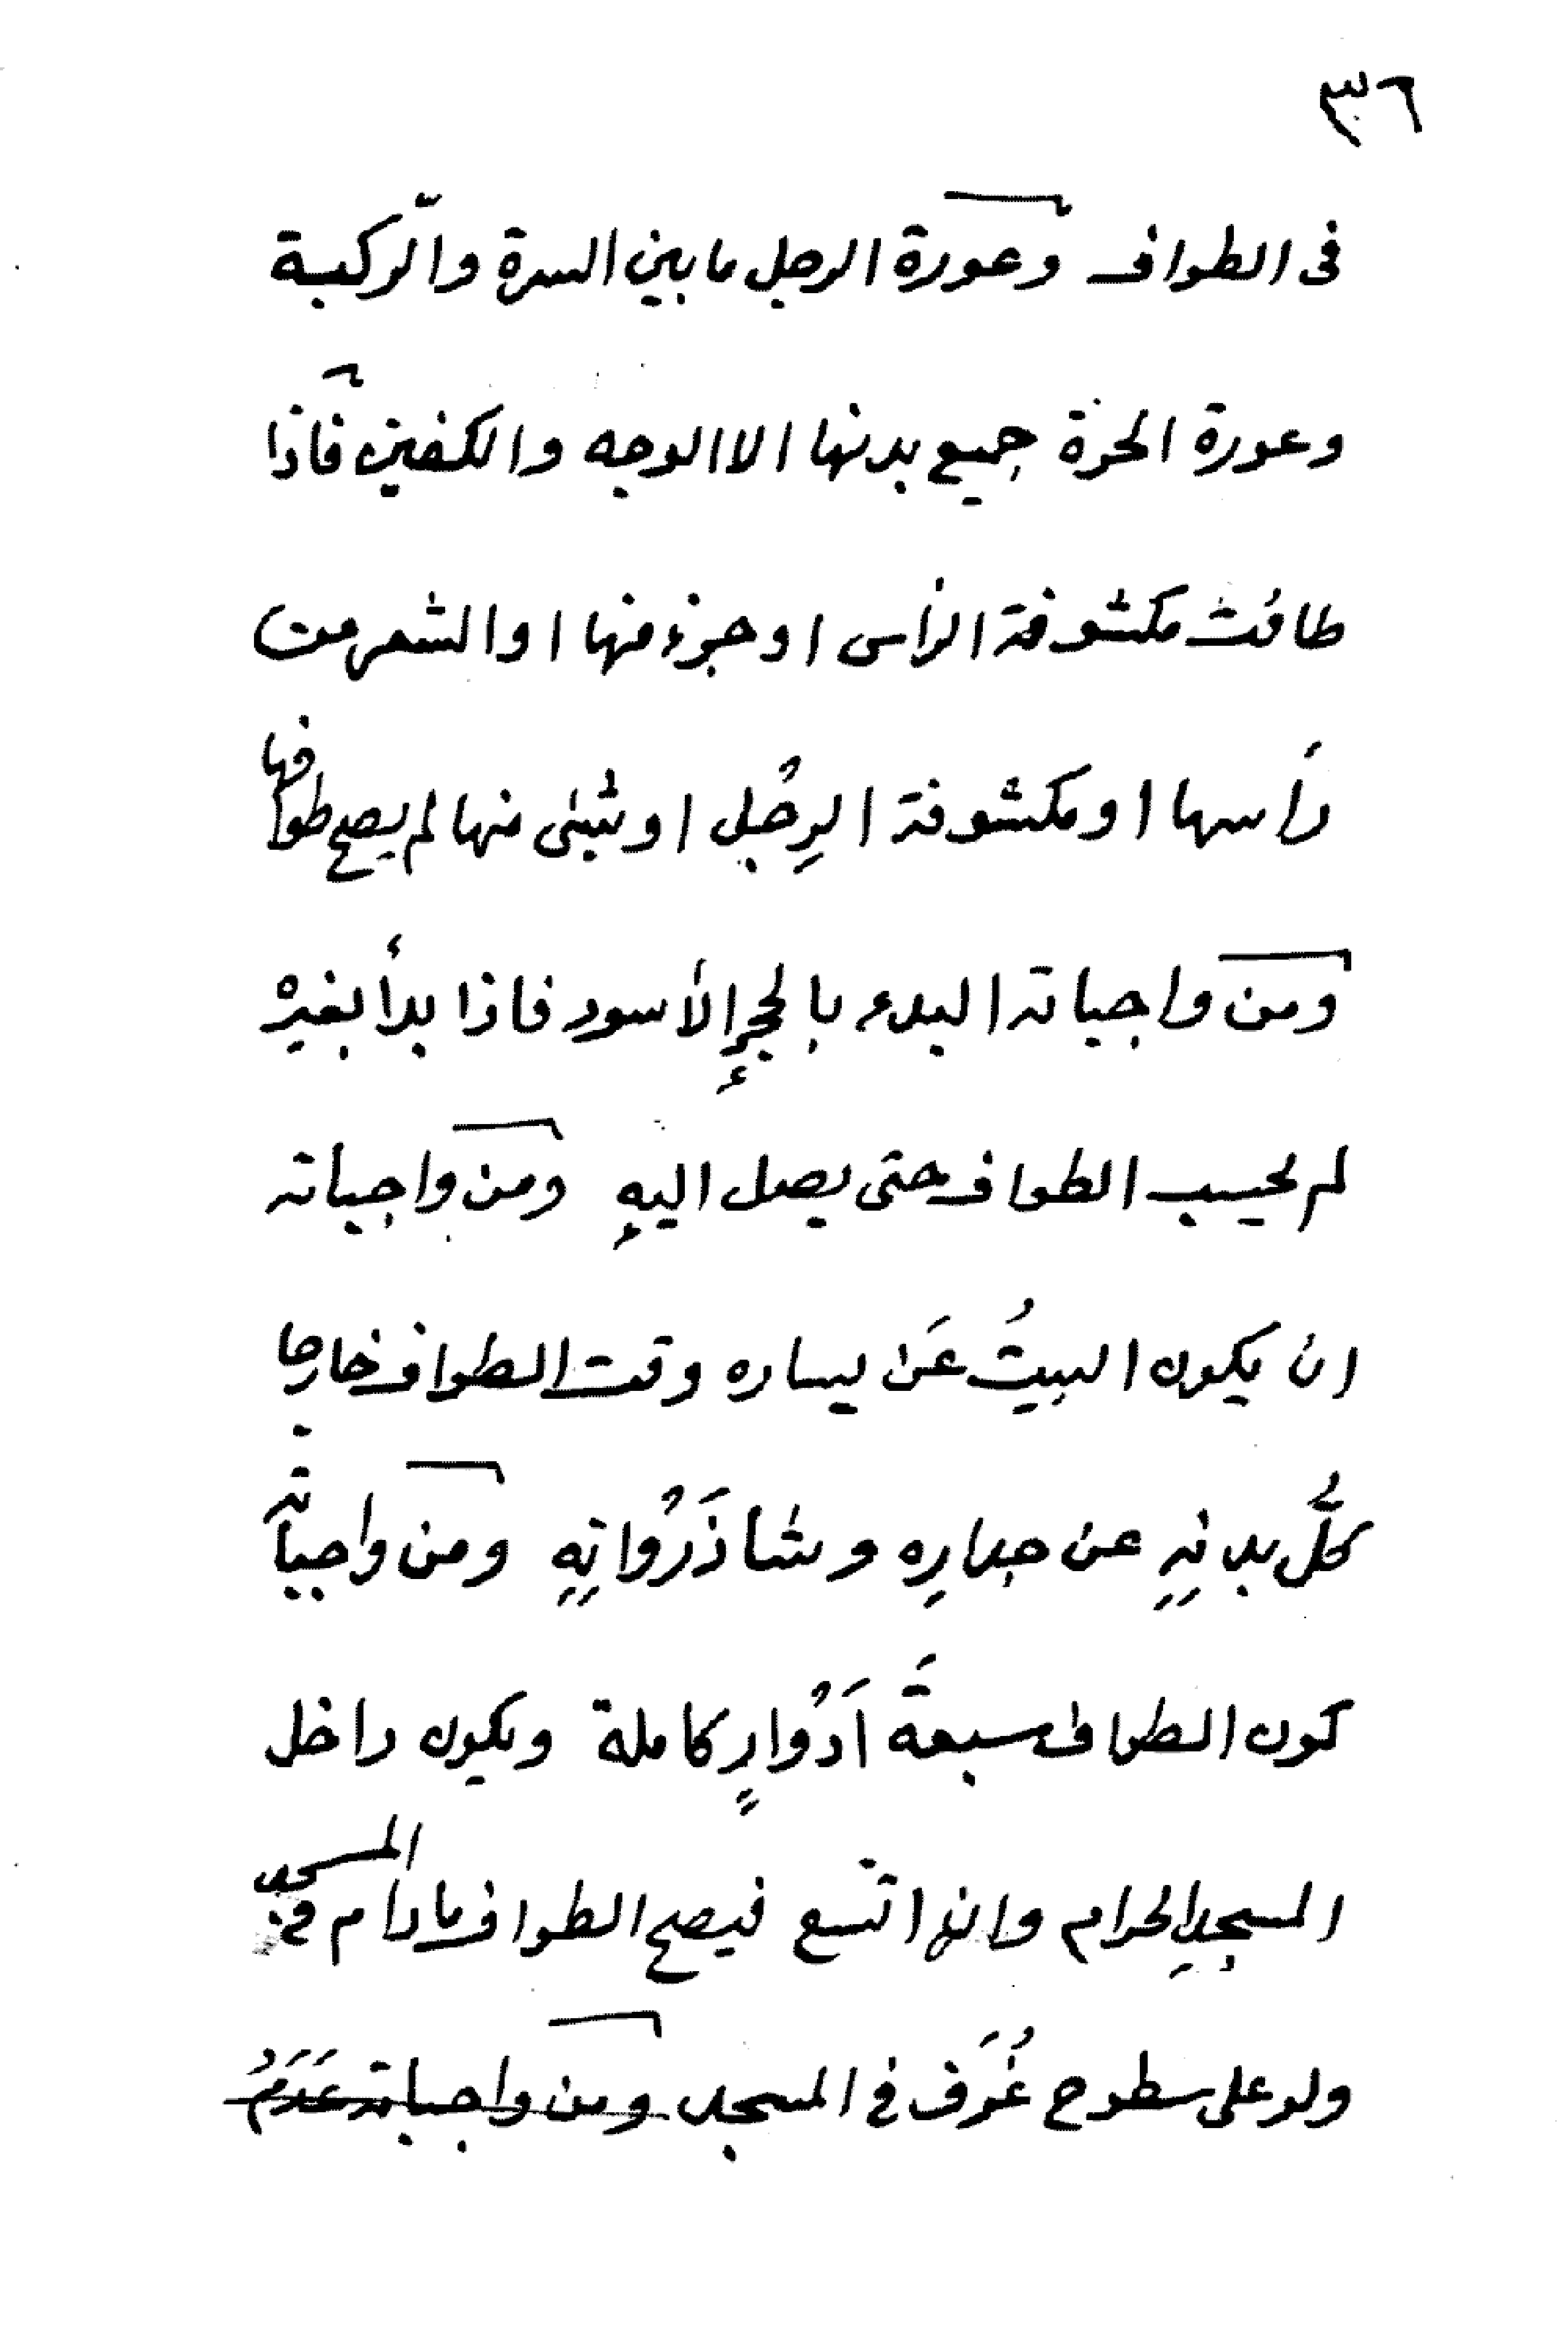 ٣٦
فى الطواف وعورة الرجل ما بين السرة والرّكبة
وعورة الحرة جميع بدنها الا الوجه والكفين فاذا
طافت مكشوفة الرأس او جزء منها او الشعر من
رأسها او مكشوفة الرِجْل او شئى منها لم يصح طوافها
ومن واجباته البدء بالحجرِ الأسود فاذا بدأ بغيره
لم يحسب الطواف حتى يصل اليهِ ومن واجباته
ان يكون البيتُ عَن يساره وقت الطواف خارجا
كلُّ بدنِهِ عن جدارِه وشاذَرْوانِهِ ومن واجباته
كون الطواف سبعةَ اَدْوارٍ كاملة ويكون داخل
المسجدِ الحرام وان اتسع فيصح الطواف مادام في المسجد
ولو على سطوح غُرَف في المسجد ومن واجباته عَدَمُ